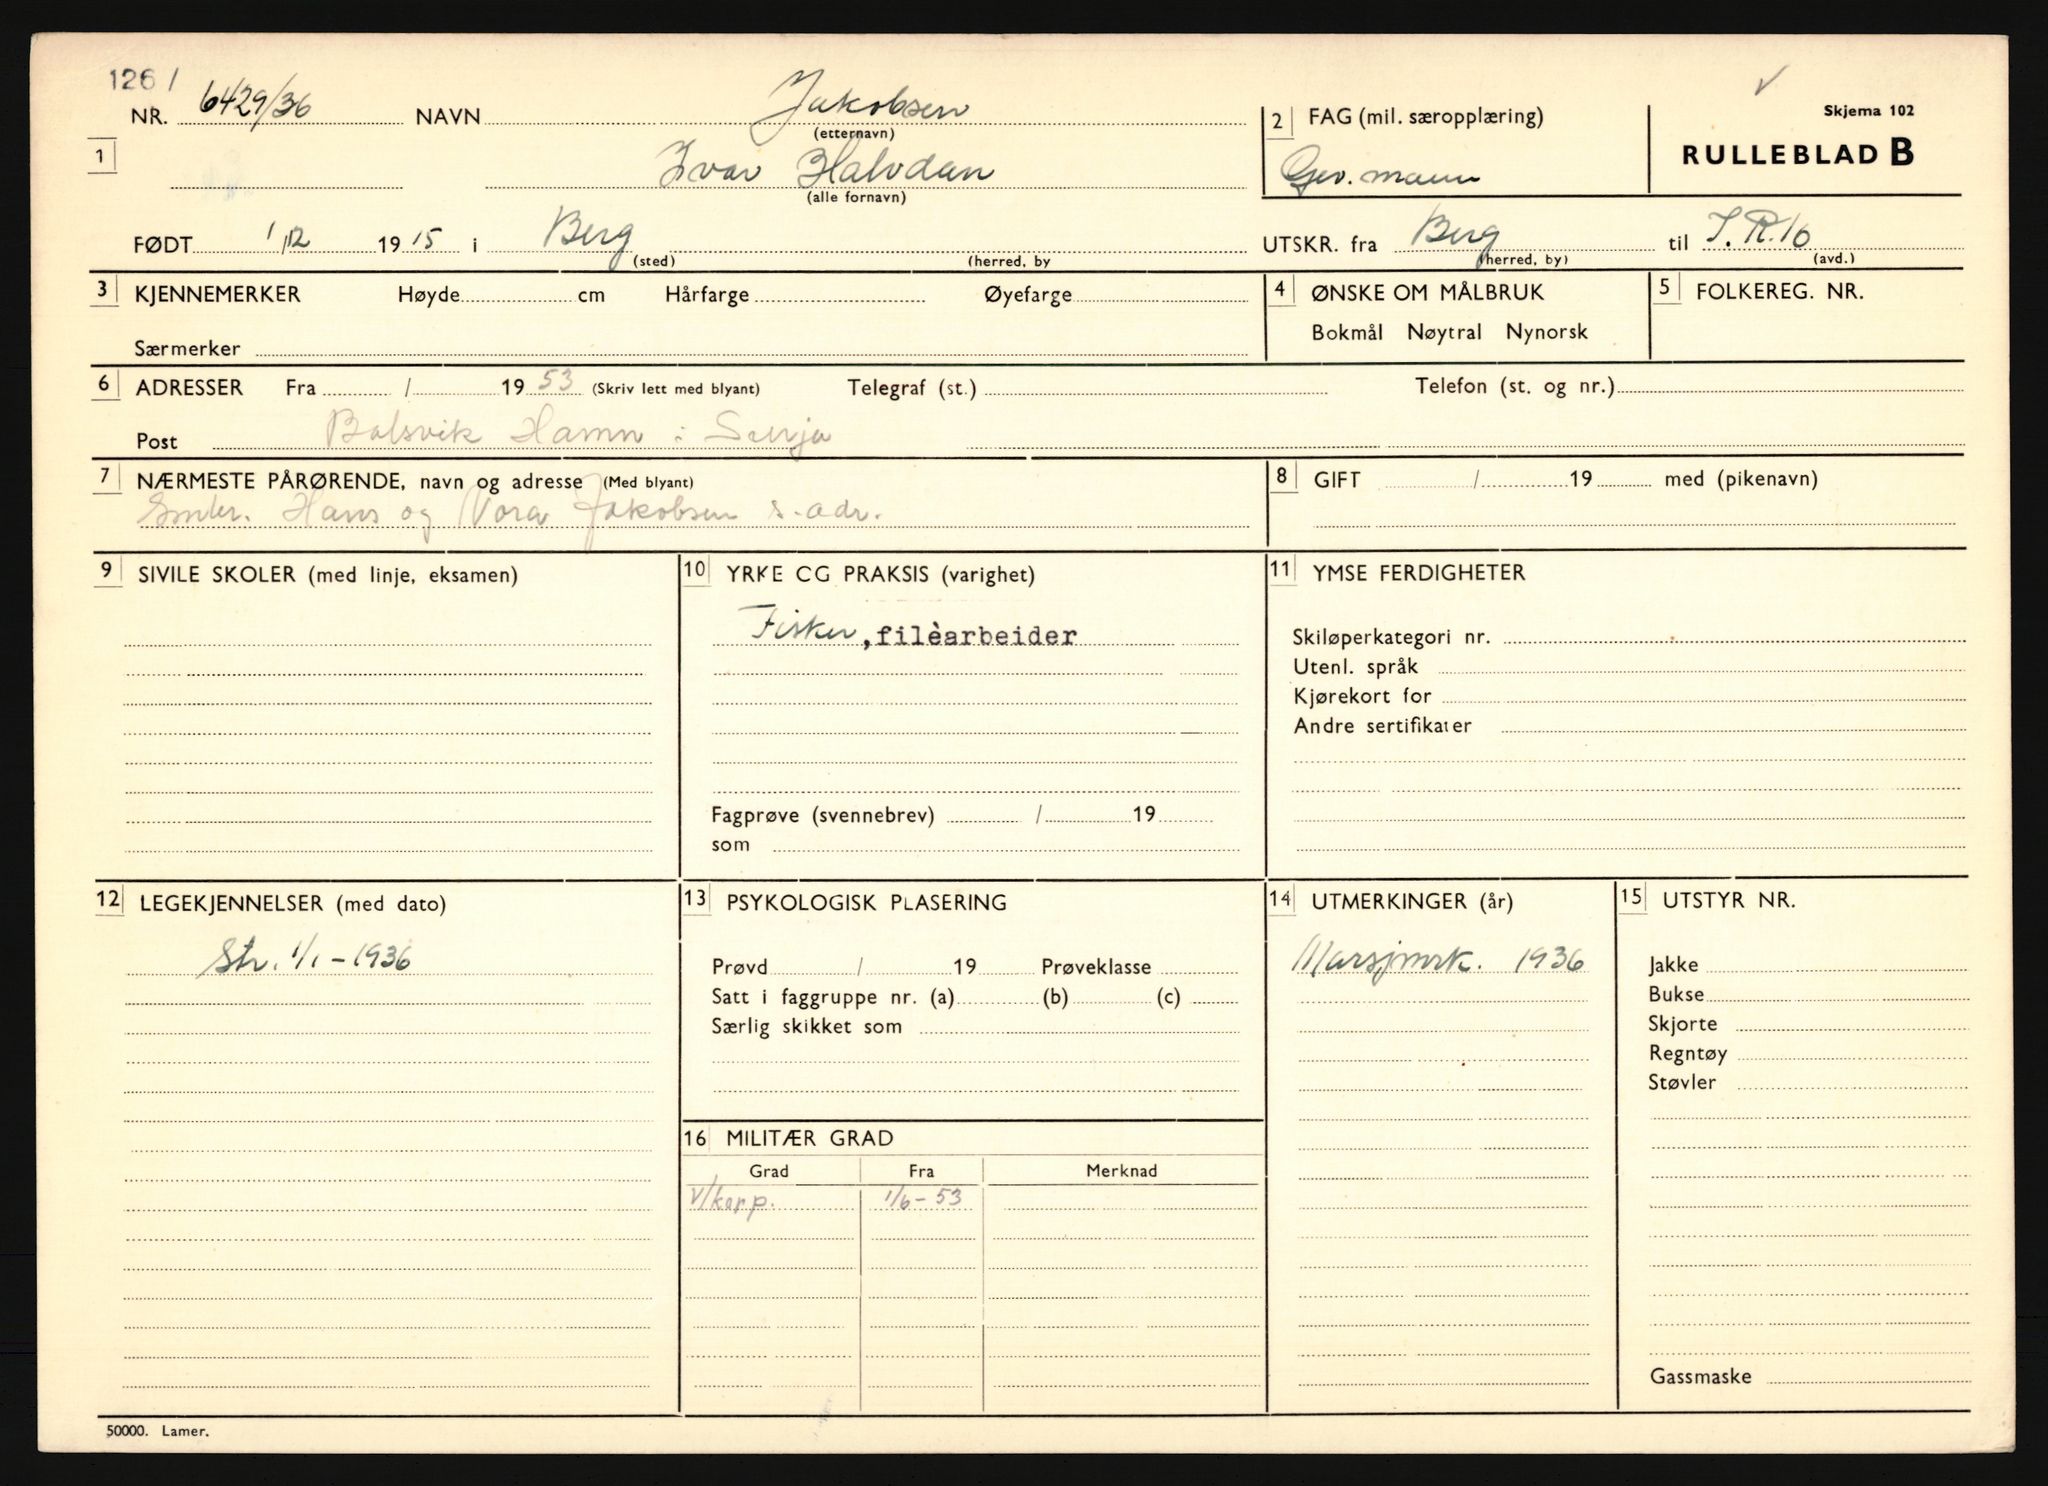 1261
NR. 6429/36 NAVN Jakobsen
(etternavn)
2 FAG (mil. særopplæring)
Skjema 102
RULLEBLAD B
1
Ivar Halvdan
(alle fornavn)
Gev. mann
FØDT 1/12 1915 i Berg
(sted) (herred, by
UTSKR. fra Berg til I.R.16
(herred, by) (avd.)
3 KJENNEMERKER Høyde cm Hårfarge Øyefarge
Særmerker
4 ØNSKE OM MÅLBRUK
Bokmål Nøytral Nynorsk
5 FOLKEREG. NR.
6 ADRESSER Fra / 1953 (Skriv lett med blyant) Telegraf (st.) Telefon (st. og nr.)
Post Balsvik Hamn i Senja
7 NÆRMESTE PÅRØRENDE, navn og adresse (Med blyant)
Hans og Nora Jakobsen s. adr.
8 GIFT / 19 med (pikenavn)
9 SIVILE SKOLER (med linje, eksamen)
10 YRKE CG PRAKSIS (varighet)
Fisker, filèarbeider
Fagprøve (svennebrev) / 19
som
11 YMSE FERDIGHETER
Skiløperkategori nr.
Utenl. språk
Kjørekort for
Andre sertifikater
12 LEGEKJENNELSER (med dato)
Str. 1/1-1936
13 PSYKOLOGISK PLASERING
Prøvd / 19 Prøveklasse
Satt i faggruppe nr. (a) (b) (c)
Særlig skikket som
14 UTMERKINGER (år)
Marsjmrk. 1936
15 UTSTYR NR.
Jakke
Bukse
Skjorte
Regntøy
Støvler
Gassmaske
16 MILITÆR GRAD
Grad Fra Merknad
V/korp. 1/6-53
50000. Lamer.